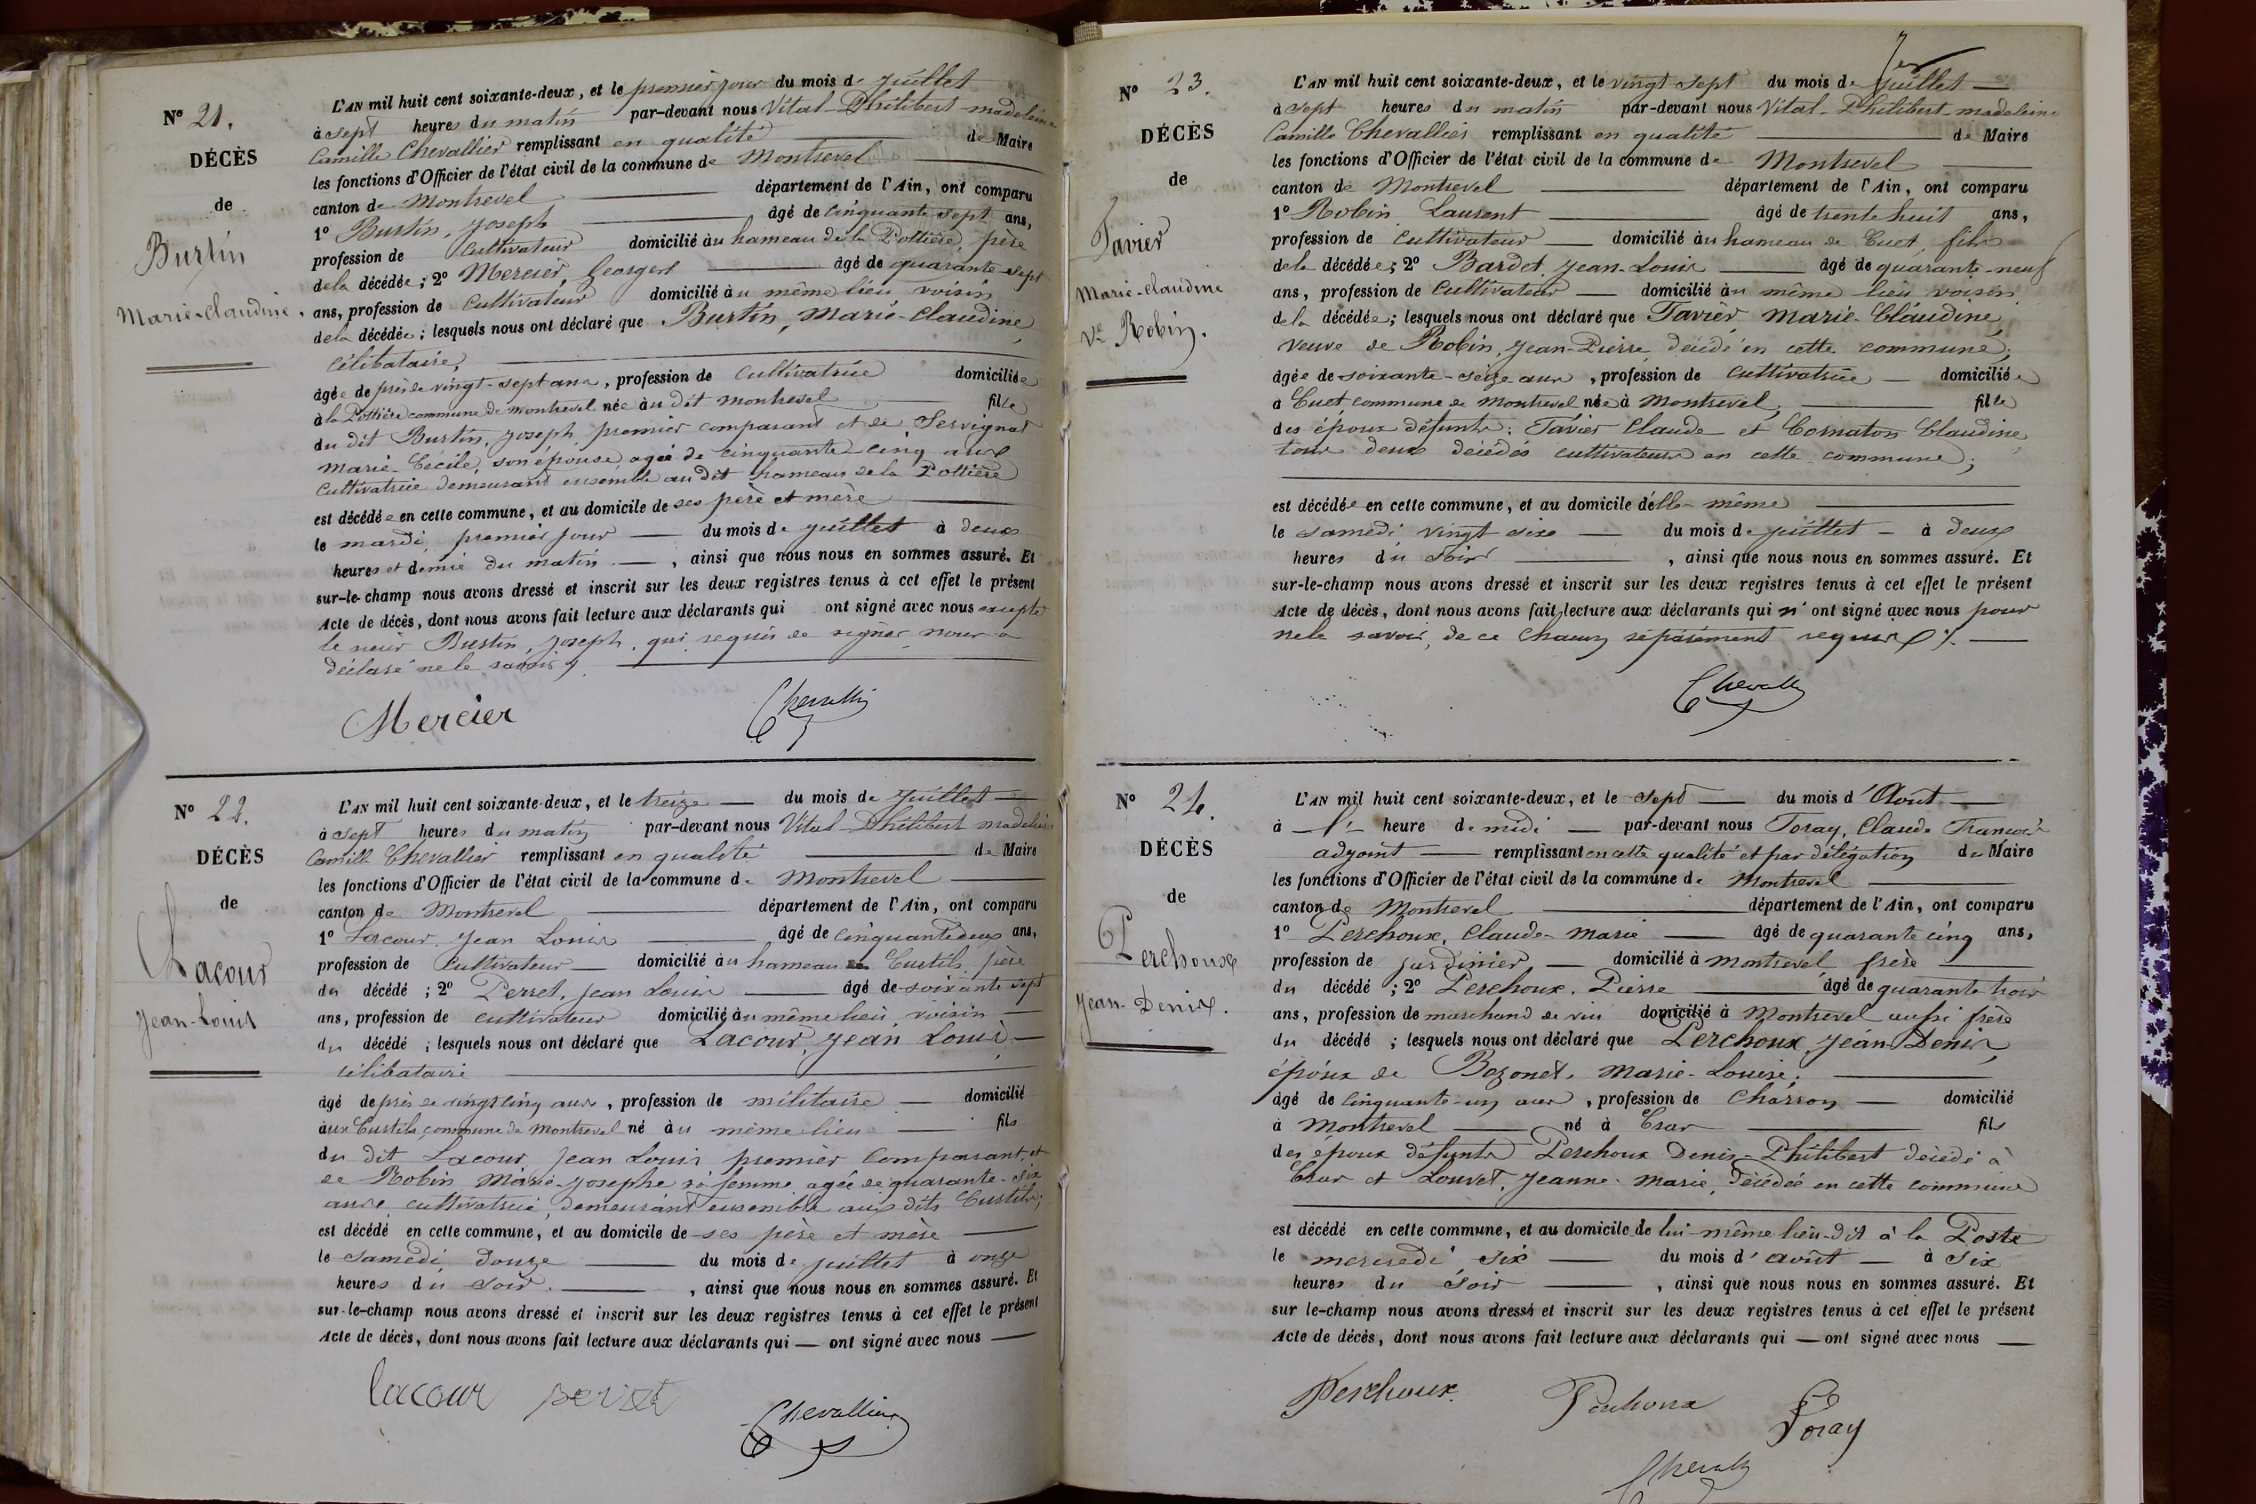 N° 21.
DÉCÈS
de
Burtin
Marie-Claudine.
L'AN mil huit cent soixante-deux, et le premier jour du mois de Juillet
à sept heures du matin par-devant nous Vital-Philibert-madeleine
Camille Chevallier remplissant en qualité de Maire
les fonctions d'Officier de l'état civil de la commune de Montrevel
canton de Montrevel département de l'Ain, ont comparu
1° Burtin, Joseph âgé de cinquante sept ans,
profession de Cultivateur domicilié au hameau de la Pottière, père
de la décédée; 2° Mercier, Georges âgé de quarante-sept
ans, profession de Cultivateur domicilié au même lieu, voisin
de la décédée; lesquels nous ont déclaré que Burtin, Marie-Claudine,
célibataire,
âgée de près de vingt-sept ans, profession de Cultivatrice domiciliée
à la Pottière commune de montrevel née au dit montrevel fille
du dit Burtin, Joseph, premier comparant et de Servignat
Marie-Cécile, son épouse, agée de cinquante cinq ans
Cultivatrice demeurant ensemble au dit hameau de la Pottière
est décédée en cette commune, et au domicile de ses père et mère
le mardi, premier jour du mois de juillet à deux
heures et demie du matin, ainsi que nous nous en sommes assuré. Et
sur-le-champ nous avons dressé et inscrit sur les deux registres tenus à cet effet le présent
Acte de décès, dont nous avons fait lecture aux déclarants qui ont signé avec nous excepté
le sieur Burtin, Joseph, qui requis de signer nous a
déclaré ne le savoir
Mercier Chevallier
N° 22.
DÉCÈS
de
Lacour
Jean-Louis
L'AN mil huit cent soixante-deux, et le treize du mois de Juillet
à sept heures du matin par-devant nous Vital-Philibert madeleine
Camille Chevallier remplissant en qualité de Maire
les fonctions d'Officier de l'état civil de la commune de Montrevel
canton de Montrevel département de l'Ain, ont comparu
1° Lacour, Jean Louis âgé de cinquante deux ans,
profession de Cultivateur domicilié au hameau Curtils, père
du décédé; 2° Perret, Jean Louis âgé de soixante sept
ans, profession de cultivateur domicilié au même lieu, voisin
du décédé; lesquels nous ont déclaré que Lacour, Jean Louis
célibataire
âgé de près de vingt cinq ans, profession de militaire domicilié
aux Curtils, commune de Montrevel né au même lieu fils
du dit Lacour Jean Louis premier comparant et
de Robin Marie-Josephe sa femme agée de quarante-six
ans, cultivatrice, demeurant ensemble aux dits Curtils;
est décédé en cette commune, et au domicile de ses père et mère
le samedi, douze du mois de juillet à onze
heures du soir, ainsi que nous nous en sommes assuré. Et
sur-le-champ nous avons dressé et inscrit sur les deux registres tenus à cet effet le présent
Acte de décès, dont nous avons fait lecture aux déclarants qui ont signé avec nous
lacour perret
Chevallier
N° 23.
DÉCÈS
de
Favier
Marie-Claudine
Ve Robin.
L'AN mil huit cent soixante-deux, et le vingt sept du mois de juillet
à sept heures du matin par-devant nous Vital-Philibert madeleine
Camille Chevallier remplissant en qualité de Maire
les fonctions d'Officier de l'état civil de la commune de Montrevel
canton de Montrevel département de l'Ain, ont comparu
1° Robin Laurent âgé de trente huit ans,
profession de Cultivateur domicilié au hameau de Cuet, fils
de la décédée; 2° Bardet, Jean-Louis âgé de quarante-neuf
ans, profession de Cultivateur domicilié au même lieu voisin
de la décédée; lesquels nous ont déclaré que Favier Marie-Claudine,
veuve de Robin, Jean-Pierre, décédé en cette commune;
âgée de soixante-seize ans, profession de Cultivatrice domiciliée
à Cuet commune de Montrevel née à Montrevel, fille
des époux défunts: Favier Claude et Cornaton Claudine,
tous deux décédés cultivateurs en cette commune;
est décédée en cette commune, et au domicile d'elle-même
le samedi vingt six du mois de juillet à deux
heures du soir, ainsi que nous nous en sommes assuré. Et
sur-le-champ nous avons dressé et inscrit sur les deux registres tenus à cet effet le présent
Acte de décès, dont nous avons fait lecture aux déclarants qui n'ont signé avec nous pour
ne le savoir, de ce chacun séparément requis
Chevallier
N° 24.
DÉCÈS
de
Perchoux
Jean-Denis.
L'AN mil huit cent soixante-deux, et le sept du mois d'Août
à 1 heure de midi par-devant nous Foray, Claude François
adjoint remplissant en cette qualité et par délégation du Maire
les fonctions d'Officier de l'état civil de la commune de Montrevel
canton de Montrevel département de l'Ain, ont comparu
1° Perchoux, Claude-Marie âgé de quarante cinq ans,
profession de jardinier domicilié à Montrevel frère
du décédé; 2° Perchoux, Pierre âgé de quarante trois
ans, profession de marchand de vin domicilié à Montrevel aussi frère
du décédé; lesquels nous ont déclaré que Perchoux, Jean-Denis,
époux de Bezonet, Marie-Louise;
âgé de cinquante-un ans, profession de Charron domicilié
à Montrevel né à Cras fils
des époux défunts Perchoux Denis-Philibert décédé à
Cras et Louvet, Jeanne-Marie, décédée en cette commune
est décédé en cette commune, et au domicile de lui-même lieu-dit à la Poste
le mercredi, six du mois d'août à six
heures du soir, ainsi que nous nous en sommes assuré. Et
sur le-champ nous avons dressé et inscrit sur les deux registres tenus à cet effet le présent
Acte de décès, dont nous avons fait lecture aux déclarants qui ont signé avec nous
Perchoux Perchoux Foray
Chevallier